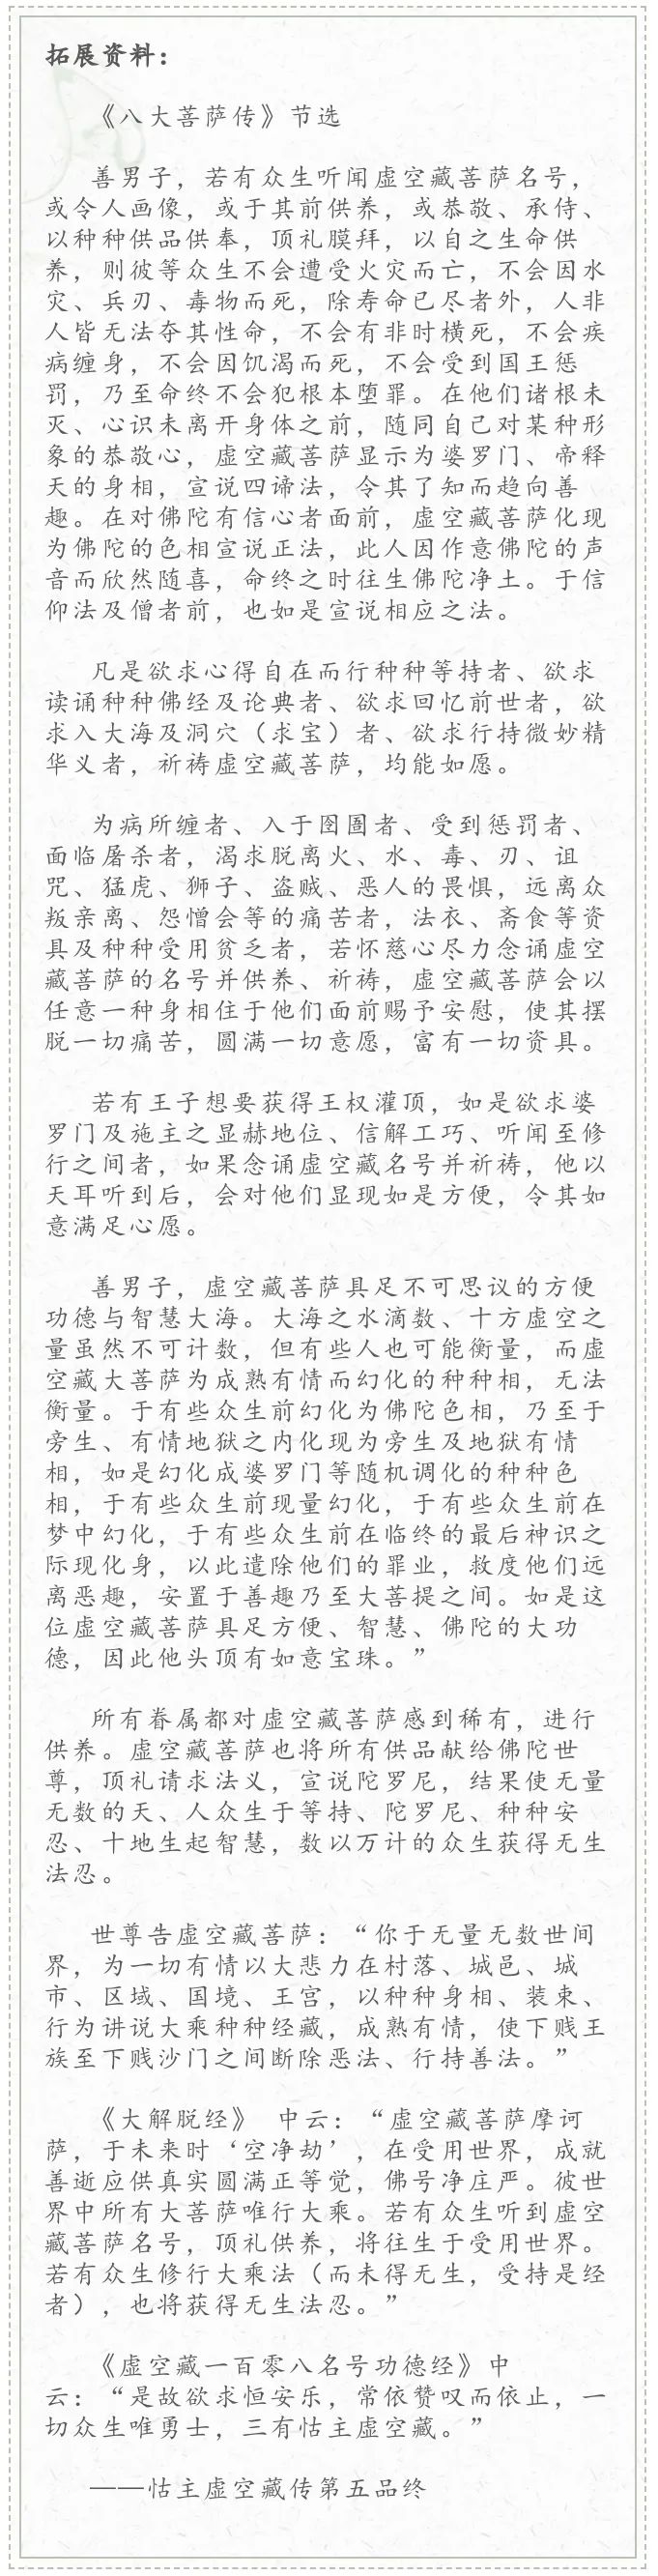 拓展资料：
《八大菩萨传》节选
善男子，若有众生听闻虚空藏菩萨名号，
或令人画像，或于其前供养，或恭敬、承侍、
以种种供品供奉，顶礼膜拜，以自之生命供
养，则彼等众生不会遭受火灾而亡，不会因水
灾、兵刃、毒物而死，除寿命已尽者外，人非
人皆无法夺其性命，不会有非时横死，不会疾
病缠身，不会因饥渴而死，不会受到国王惩
罚，乃至命终不会犯根本堕罪。在他们诸根未
灭、心识未离开身体之前，随同自己对某种形
象的恭敬心，虚空藏菩萨显示为婆罗门、帝释
天的身相，宣说四谛法，令其了知而趋向善
趣。在对佛陀有信心者面前，虚空藏菩萨化现
为佛陀的色相宣说正法，此人因作意佛陀的声
音而欣然随喜，命终之时往生佛陀净土。于信
仰法及僧者前，也如是宣说相应之法。
凡是欲求心得自在而行种种等持者、欲求
读诵种种佛经及论典者、欲求回忆前世者，欲
求入大海及洞穴（求宝）者、欲求行持微妙精
华义者，祈祷虚空藏菩萨，均能如愿。
为病所缠者、入于囹圄者、受到惩罚者、
面临屠杀者，渴求脱离火、水、毒、刃、诅
咒、猛虎、狮子、盗贼、恶人的畏惧，远离众
叛亲离、怨憎会等的痛苦者，法衣、斋食等资
具及种种受用贫乏者，若怀慈心尽力念诵虚空
藏菩萨的名号并供养、祈祷，虚空藏菩萨会以
任意一种身相住于他们面前赐予安慰，使其摆
脱一切痛苦，圆满一切意愿，富有一切资具。
若有王子想要获得王权灌顶，如是欲求婆
罗门及施主之显赫地位、信解工巧、听闻至修
行之间者，如果念诵虚空藏名号并祈祷，他以
天耳听到后，会对他们显现如是方便，令其如
意满足心愿。
善男子，虚空藏菩萨具足不可思议的方便
功德与智慧大海。大海之水滴数、十方虚空之
量虽然不可计数，但有些人也可能衡量，而虚
空藏大菩萨为成熟有情而幻化的种种相，无法
衡量。于有些众生前幻化为佛陀色相，乃至于
旁生、有情地狱之内化现为旁生及地狱有情
相，如是幻化成婆罗门等随机调化的种种色
相，于有些众生前现量幻化，于有些众生前在
梦中幻化，于有些众生前在临终的最后神识之
际现化身，以此遣除他们的罪业，救度他们远
离恶趣，安置于善趣乃至大菩提之间。如是这
位虚空藏菩萨具足方便、智慧、佛陀的大功
德，因此他头顶有如意宝珠。”
所有眷属都对虚空藏菩萨感到稀有，进行
供养。虚空藏菩萨也将所有供品献给佛陀世
尊，顶礼请求法义，宣说陀罗尼，结果使无量
无数的天、人众生于等持、陀罗尼、种种安
忍、十地生起智慧，数以万计的众生获得无生
法忍。
世尊告虚空藏菩萨：“你于无量无数世间
界，为一切有情以大悲力在村落、城邑、城
市、区域、国境、王宫，以种种身相、装束、
行为讲说大乘种种经藏，成熟有情，使下贱王
族至下贱沙门之间断除恶法、行持善法。”
《大解脱经》 中云：“虚空藏菩萨摩诃
萨，于未来时‘空净劫’，在受用世界，成就
善逝应供真实圆满正等觉，佛号净庄严。彼世
界中所有大菩萨唯行大乘。若有众生听到虚空
藏菩萨名号，顶礼供养，将往生于受用世界。
若有众生修行大乘法（而未得无生，受持是经
者），也将获得无生法忍。”
《虚空藏一百零八名号功德经》中
云：“是故欲求恒安乐，常依赞叹而依止，一
切众生唯勇士，三有怙主虚空藏。”
——怙主虚空藏传第五品终